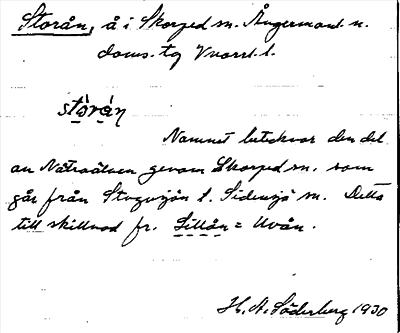 Storån, å i Skorped sn. Ångermanl. n.
doms. tg Vnorrl. l.
stò̱rá̱n
Namnet betecknar den del
av Nätraälven genom Skorped sn. som
går från Stugusjön t. Sidensjö sn. Detta
till skillnad fr. Lillån = Uvån.
H. A. Söderberg 1930